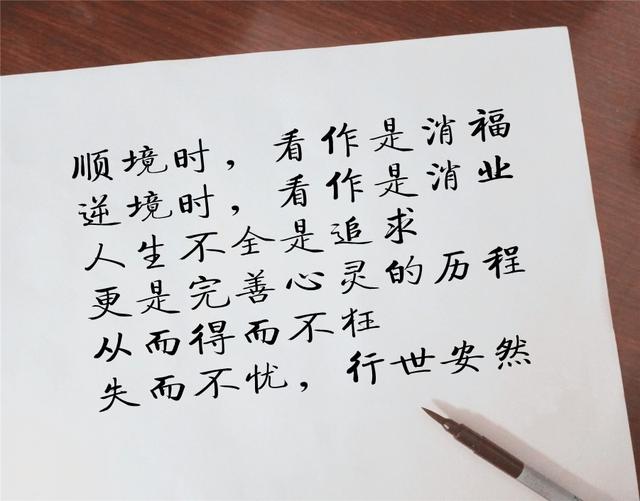 顺境时，看作是消福
逆境时，看作是消业
人生不全是追求
更是完善心灵的历程
从而得而不枉
失而不忧，行世安然